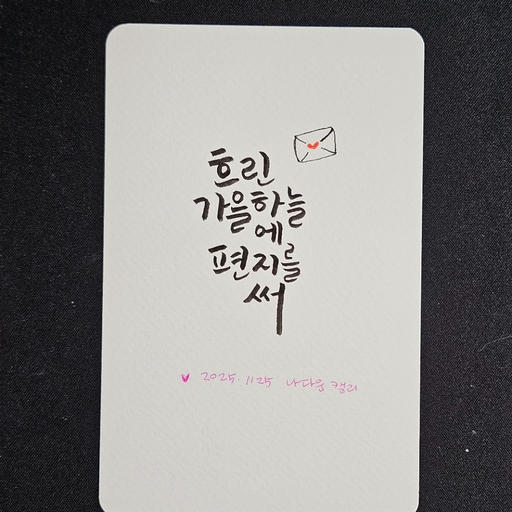 흐린
가을하늘
에
편지를
써
2025. 11 25 나다움 캘리